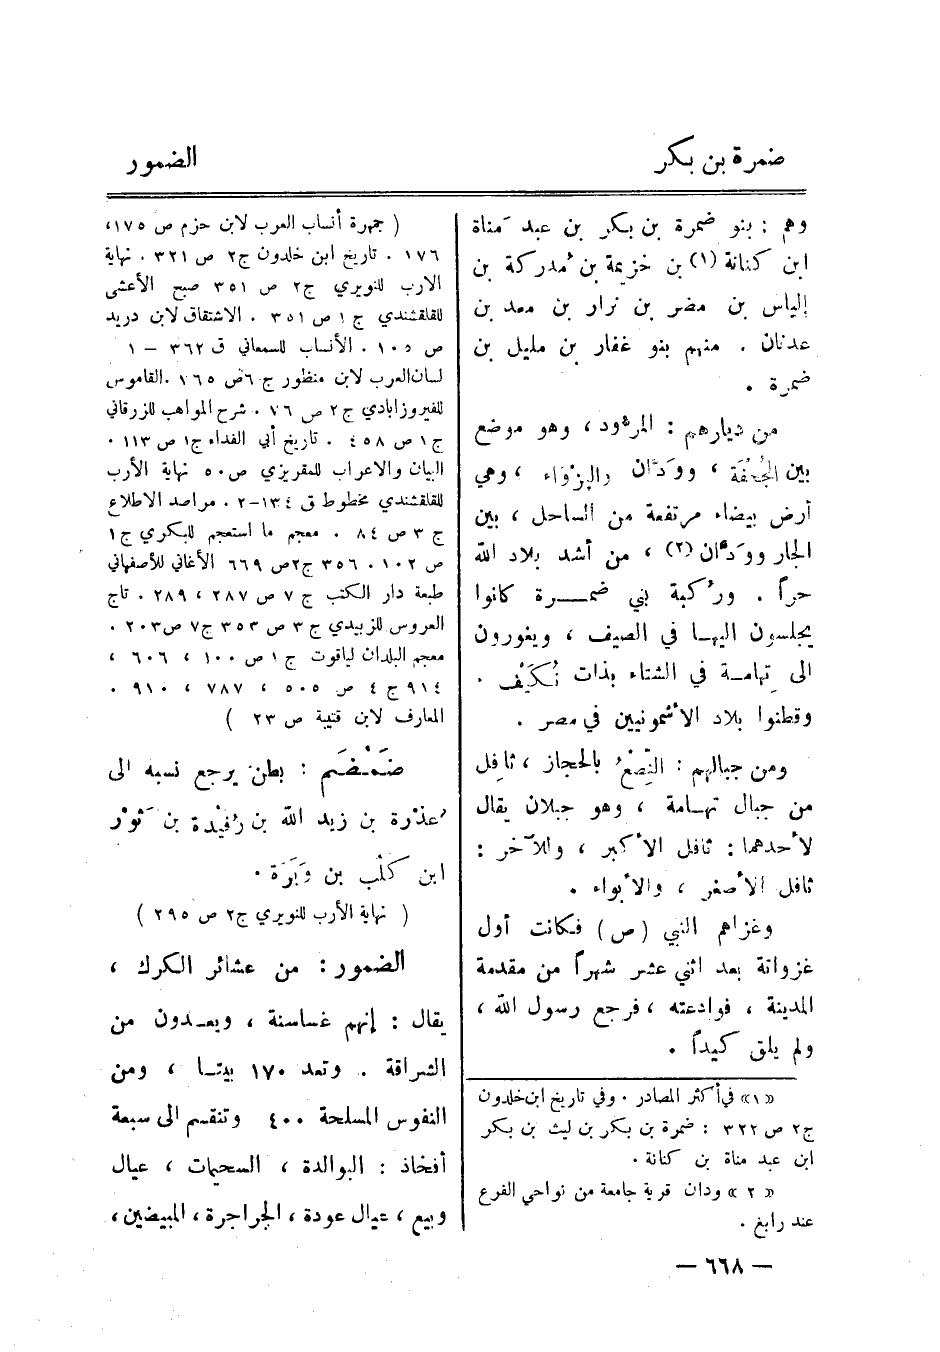 ضمرة بن بكر
الضمور
وهم : بنو ضمرة بن بكر بن عبد مناة
ابن كنانة (١) بن خزيمة بن مدركة بن
إلياس بن مضر بن نزار بن معد بن
عدنان . منهم بنو غفار بن مليل بن
ضمرة .
من ديارهم : المرْود ، وهو موضع
بين الجُحْفَة ، وودَّان والبزْواء ، وهي
أرض بيضاء مرتفعة من الساحل ، بين
الجار وودَّان (٢) ، من أشد بلاد الله
حراً . وركبة بني ضمــرة كانوا
يجلسون اليهــا في الصيف ، ويغورون
الى تِهامــة في الشتاء بذات نُكَيْف .
وقطنوا بلاد الأشمونيين في مصر .
ومن جبالهم : النِّصْع بالحجاز ، ثافل
من جبال تهــامة ، وهو جبلان يقال
لأحدهما : ثافل الأكبر ، وللآخر :
ثافل الأصغر ، والأبواء .
وغزاهم النبي (ص) فكانت أول
غزواتة بعد اثني عشر شهراً من مقدمة
المدينة ، فوادعته ، فرجع رسول الله ،
ولم يلق كيداً .
«١» في أكثر المصادر . وفي تاريخ ابن خلدون
ج٢ ص ٣٢٢ : ضمرة بن بكر بن ليث بن بكر
ابن عبد مناة بن كنانة .
«٢» ودان قرية جامعة من نواحي الفرع
عند رابغ .
( جمهرة أنساب العرب لابن حزم ص ١٧٥،
١٧٦ . تاريخ ابن خلدون ج٢ ص ٣٢١ . نهاية
الارب للنويري ج٢ ص ٣٥١ صبح الأعشى
للقلقشندي ج ١ ص ٣٥١ . الاشتقاق لابن دريد
ص ١٠٥ . الأنساب للسمعاني ق ٣٦٢ — ١
لسان العرب لابن منظور ج ٦ ص ١٦٥ . القاموس
للفيروزابادي ج ٢ ص ٧٦ . شرح المواهب للزرقاني
ج ١ ص ٤٥٨ . تاريخ أبي الفداء ج١ ص ١١٣ .
البيان والاعراب للمقريزي ص ٥٠ نهاية الأرب
للقلقشندي مخطوط ق ١٣٤-٢ . مراصد الاطلاع
ج ٣ ص ٨٤ . معجم ما استعجم للبكري ج١
ص ١٠٢ . ٣٥٦ ج٢ ص ٦٦٩ الأغاني للأصفهاني
طبعة دار الكتب ج ٧ ص ٢٨٧ ، ٢٨٩ . تاج
العروس للزبيدي ج ٣ ص ٣٥٣ ج٧ ص ٢٠٣ .
معجم البلدان لياقوت ج ١ ص ١٠٠ ، ٦٠٦ ،
٩١٤ ج ٤ ص ٥٠٥ ، ٧٨٧ ، ٩١٠ .
المعارف لابن قتيبة ص ٢٣ )
ضَمْضَم : بطن يرجع نسبه الى
عذْرة بن زيد الله بن رُفَيْدة بن ثَوْر
ابن كلْب بن وَبَرَة .
( نهاية الأرب للنويري ج٢ ص ٢٩٥ )
الضمور : من عشائر الكرك ،
يقال : إنهم غساسنة ، ويعــدون من
الشراقة . وتعد ١٧٠ بيتــا ، ومن
النفوس المسلحة ٤٠٠ وتنقسم الى سبعة
أفخاذ : البوالدة ، السحيمات ، عيال
وبيع ، عيال عودة ، الجراجرة ، المبيضين ،
— ٦٦٨ —